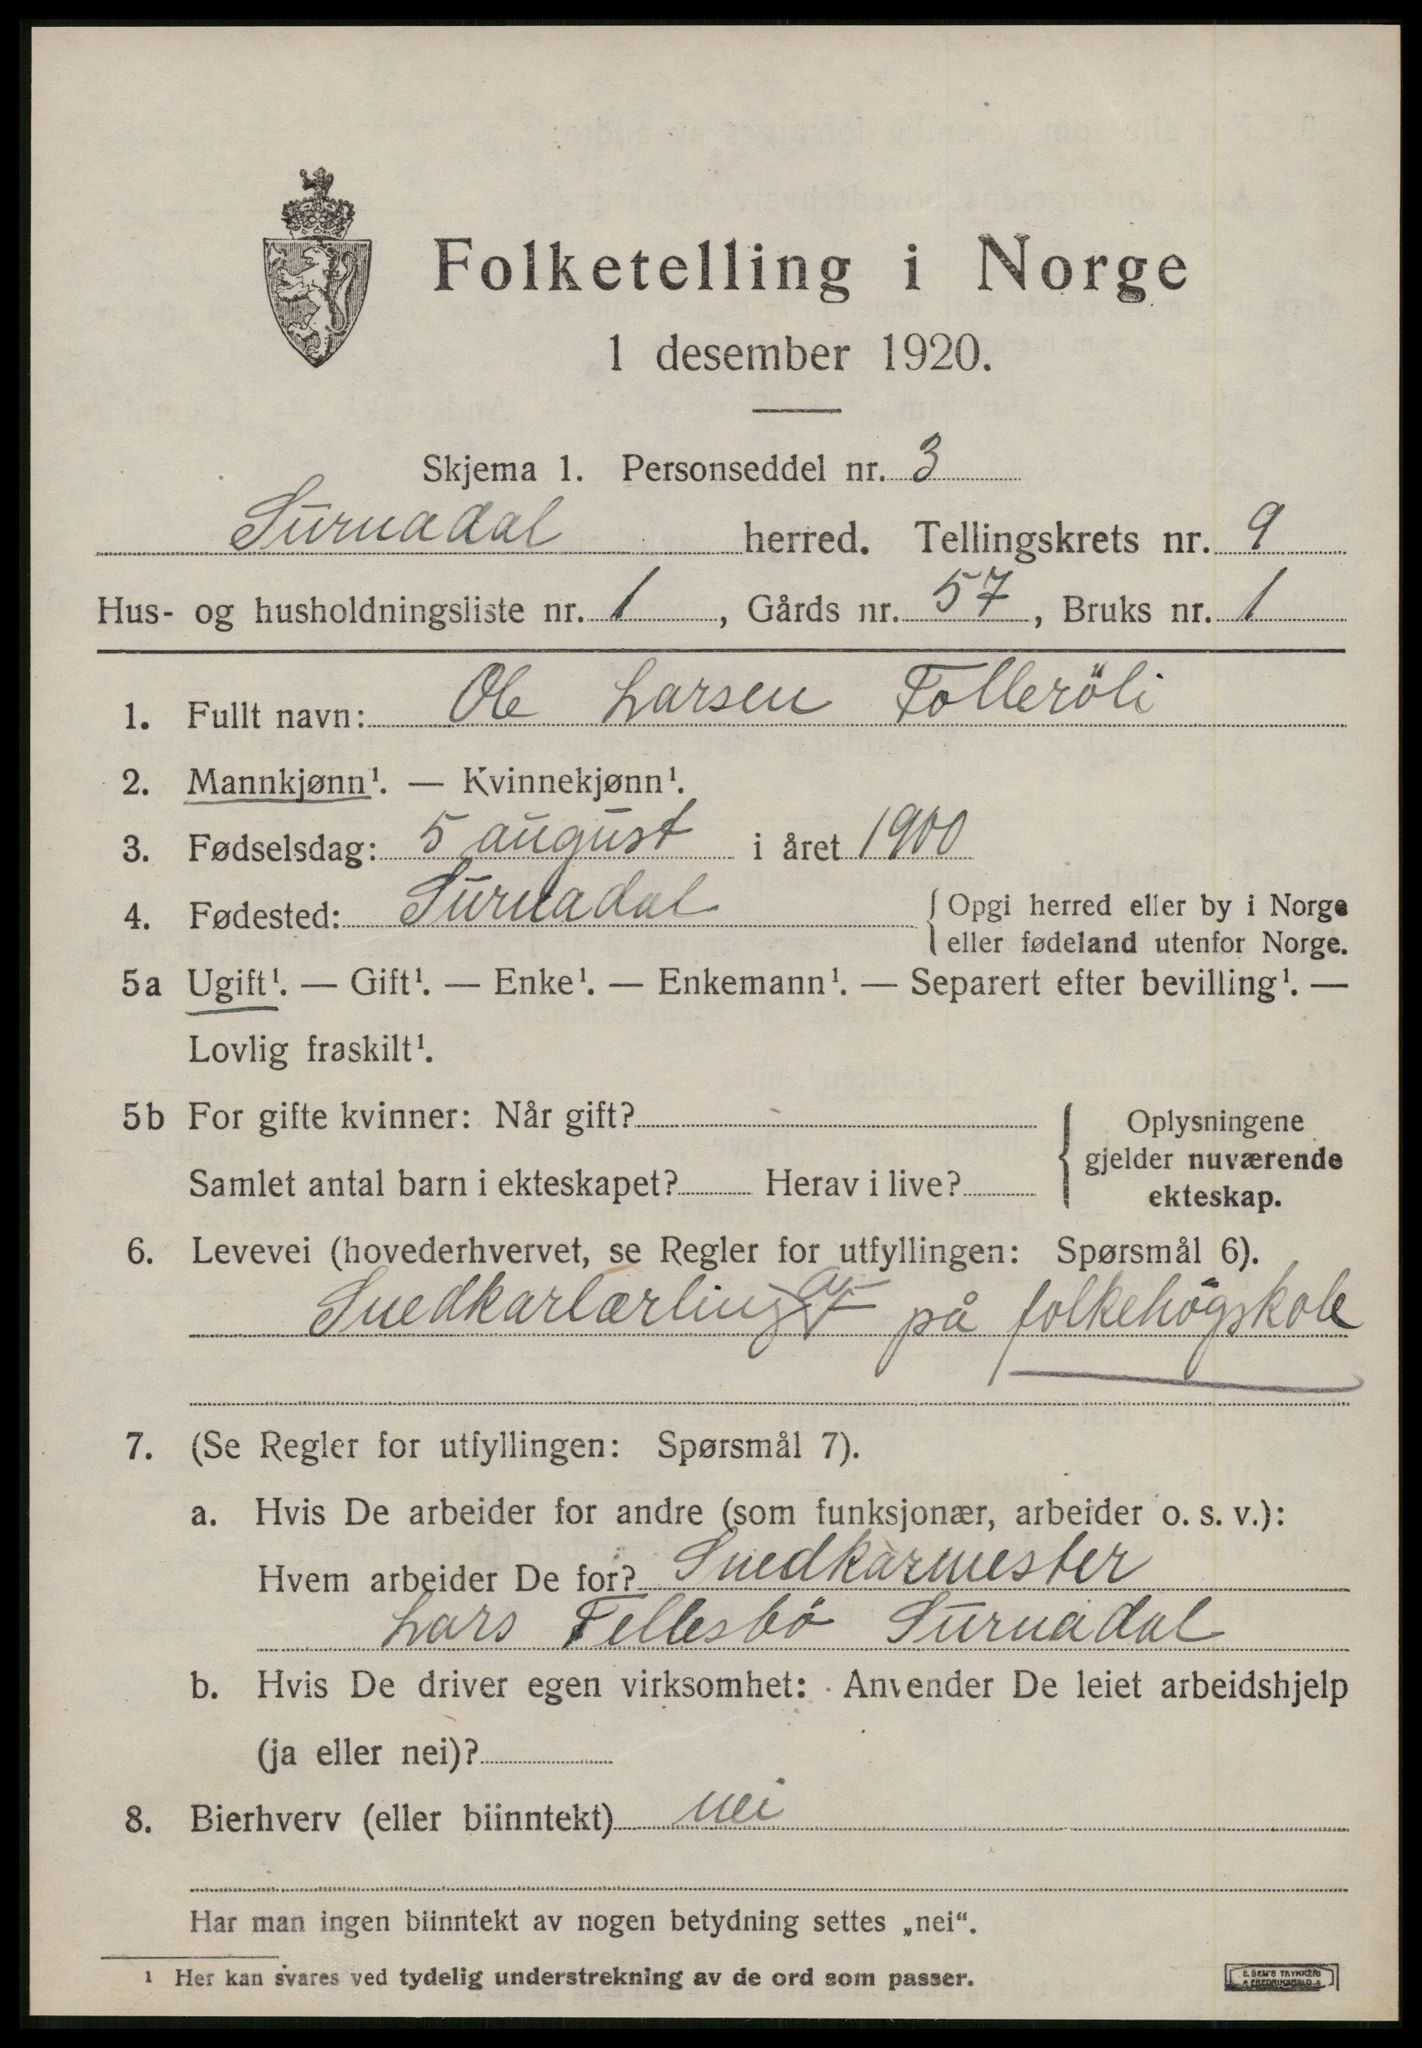 Folketelling i Norge
1 desember 1920.
Skjema 1. Personseddel nr. 3
Surnadal herred. Tellingskrets nr. 9
Hus- og husholdningsliste nr. 1, Gårds nr. 57, Bruks nr. 1
1. Fullt navn: Ole Larsen Folleröli
2. Mannkjønn¹. — Kvinnekjønn¹.
3. Fødselsdag: 5 august i året 1900
4. Fødested: Surnadal { Opgi herred eller by i Norge
eller fødeland utenfor Norge.
5a Ugift¹. — Gift¹. — Enke¹. — Enkemann¹. — Separert efter bevilling¹. —
Lovlig fraskilt¹.
5b For gifte kvinner: Når gift?
Samlet antal barn i ekteskapet? Herav i live?
{ Oplysningene
gjelder nuværende
ekteskap.
6. Levevei (hovederhvervet, se Regler for utfyllingen: Spørsmål 6).
Snedkarlærling på folkehögskole
7. (Se Regler for utfyllingen: Spørsmål 7).
a. Hvis De arbeider for andre (som funksjonær, arbeider o. s. v.):
Hvem arbeider De for? Snedkarmester
Lars Fellesbö Surnadal
b. Hvis De driver egen virksomhet: Anvender De leiet arbeidshjelp
(ja eller nei)?
8. Bierhverv (eller biinntekt) nei
Har man ingen biinntekt av nogen betydning settes „nei“.
¹ Her kan svares ved tydelig understrekning av de ord som passer.